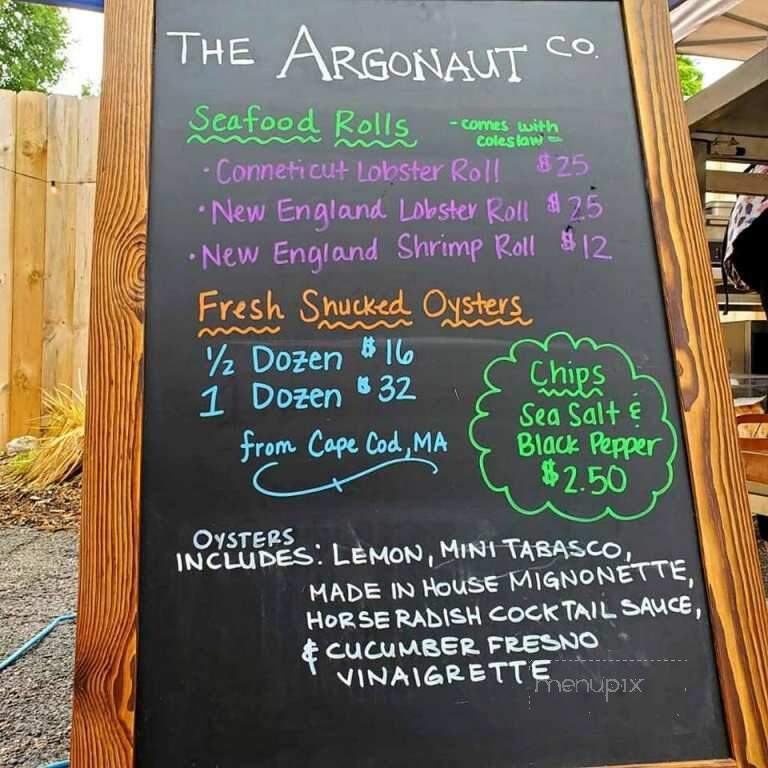 THE ARGONAUT CO.
Seafood Rolls - comes with
coleslaw -
· Conneticut Lobster Roll $25
· New England Lobster Roll $25
· New England Shrimp Roll $12
Fresh Shucked Oysters
1/2 Dozen $16
1 Dozen $32
from Cape Cod, MA
Chips
Sea Salt &
Black Pepper
$2.50
OYSTERS
INCLUDES: LEMON, MINI TABASCO,
MADE IN HOUSE MIGNONETTE,
HORSERADISH COCKTAIL SAUCE,
& CUCUMBER FRESNO
VINAIGRETTE
menupix